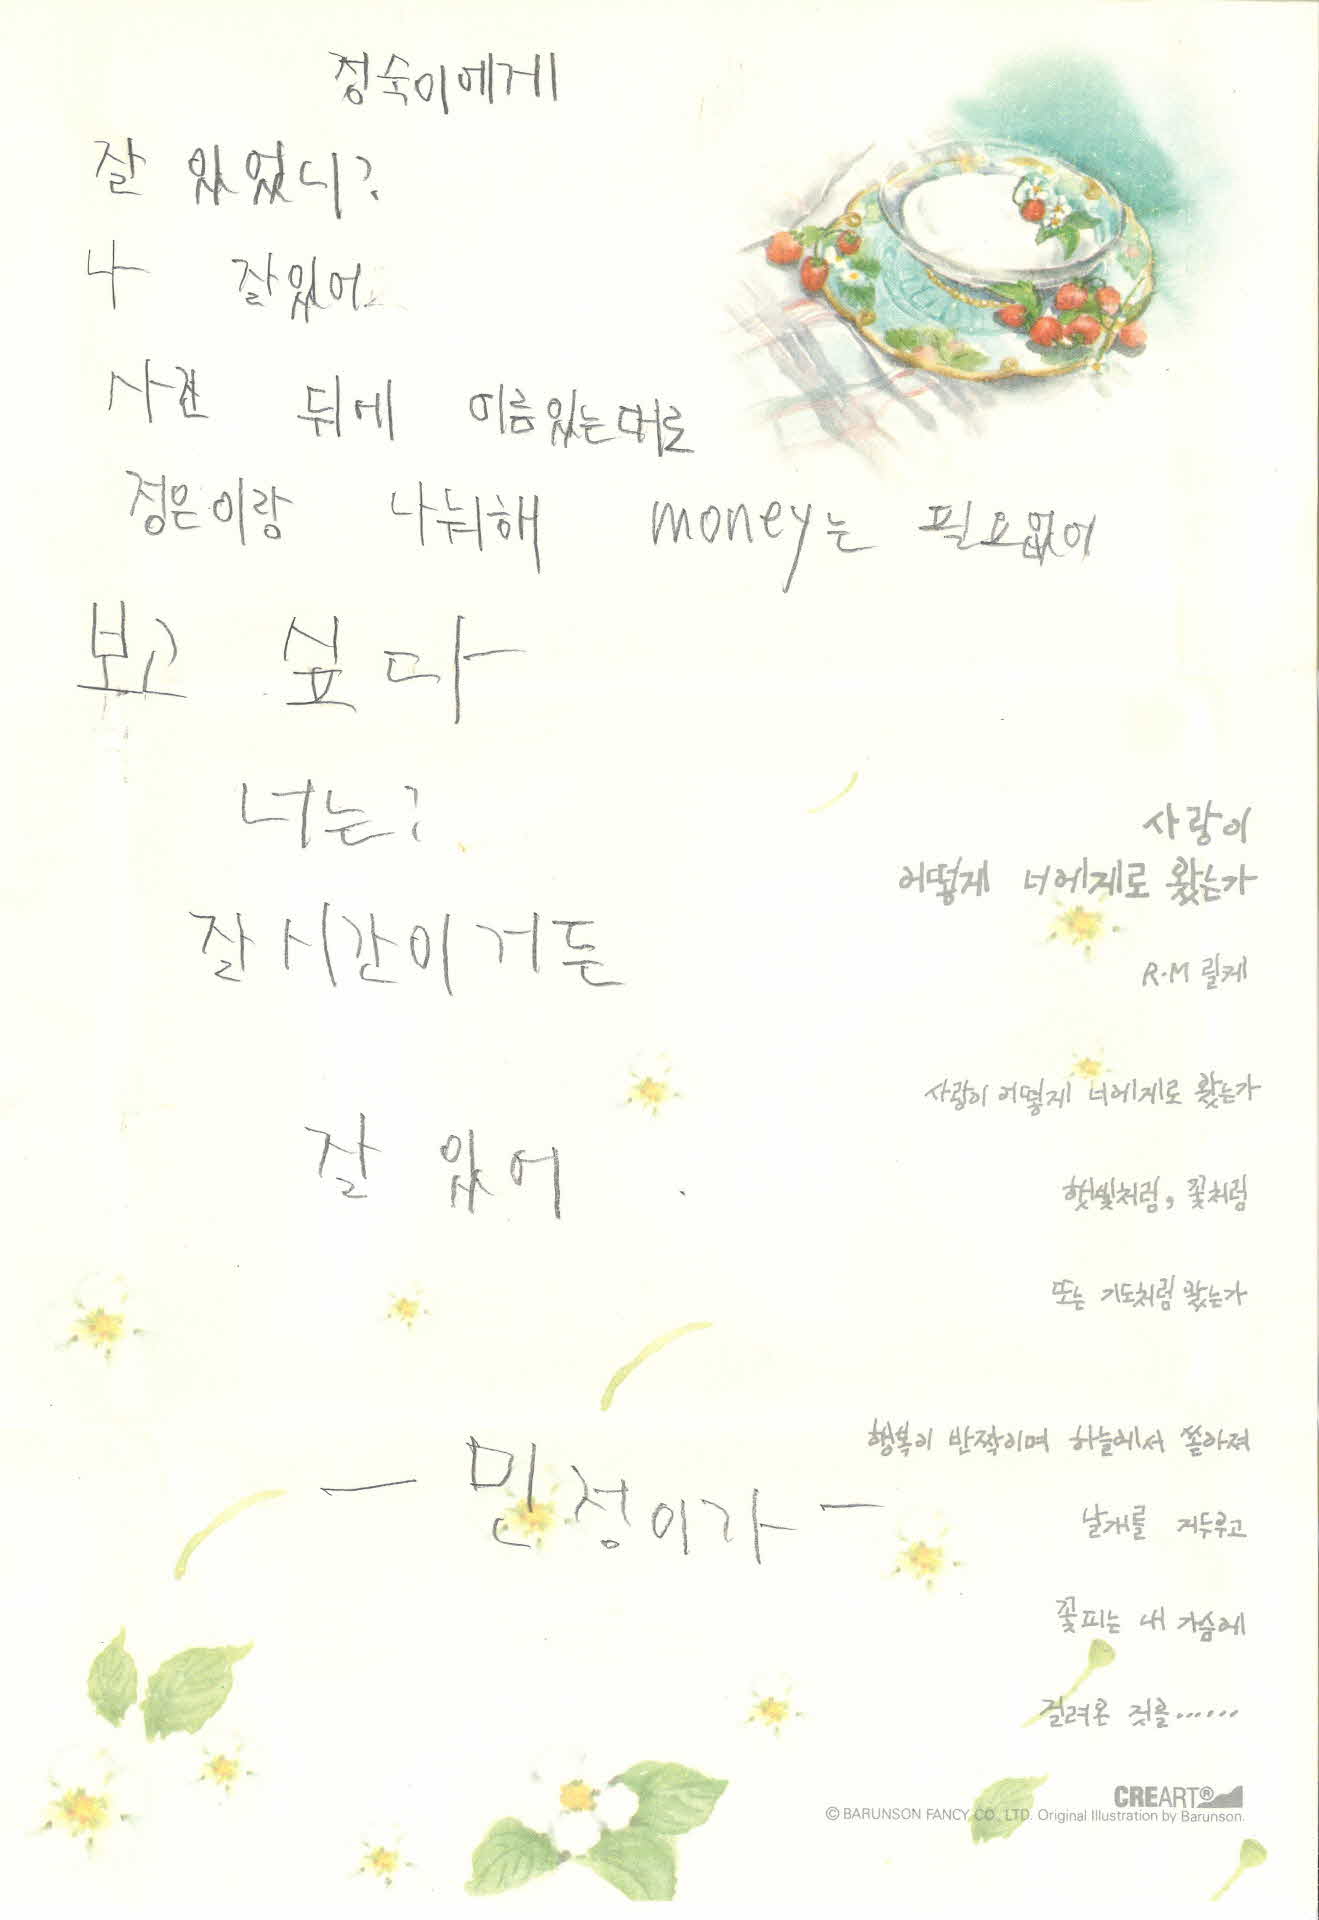 정숙이에게
잘 있었니?
나 잘있어.
사진 뒤에 이름있는대로
정은이랑 나눠해 money는 필요없어
보고 싶다
너는?
잘시간이거든
잘 있어
— 민정이가 —
사랑이
어떻게 너에게로 왔는가
R·M 릴케
사랑이 어떻게 너에게로 왔는가
햇빛처럼, 꽃처럼
또는 기도처럼 왔는가
행복이 반짝이며 하늘에서 쏟아져
날개를 거두고
꽃피는 내 가슴에
걸려온 것을......
CREART®
© BARUNSON FANCY CO., LTD. Original Illustration by Barunson.